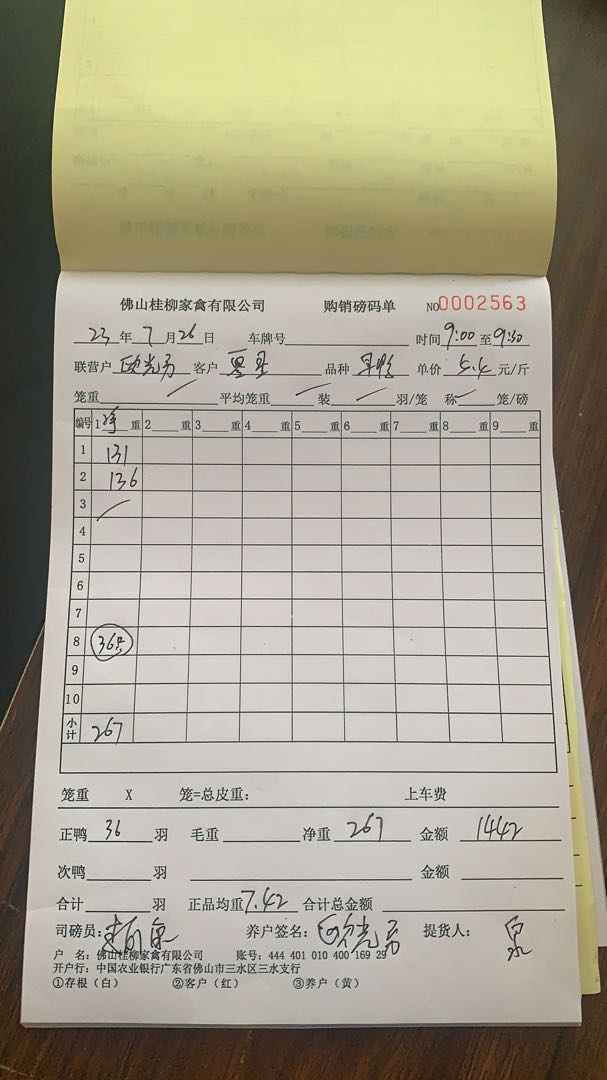 佛山桂柳家禽有限公司 购销磅码单 NO 0002563
23年7月26日 车牌号 时间9:00至9:30
联营户 欧光勇 客户 品种 单价 5.4 元/斤
笼重 平均笼重 装 羽/笼 称 笼/磅
编号 1 净 重 2 重 3 重 4 重 5 重 6 重 7 重 8 重 9 重
1 131
2 136
3
4
5
6
7
8 36只
9
10
小计 267
笼重 X 笼=总皮重: 上车费
正鸭 36 羽 毛重 净重 267 金额 1442
次鸭 羽 金额
合计 羽 正品均重 7.42 合计总金额
司磅员: 养户签名: 欧光勇 提货人:
户 名: 佛山桂柳家禽有限公司 账号: 444 401 010 400 169 29
开户行: 中国农业银行广东省佛山市三水区三水支行
①存根(白) ②客户(红) ③养户(黄)